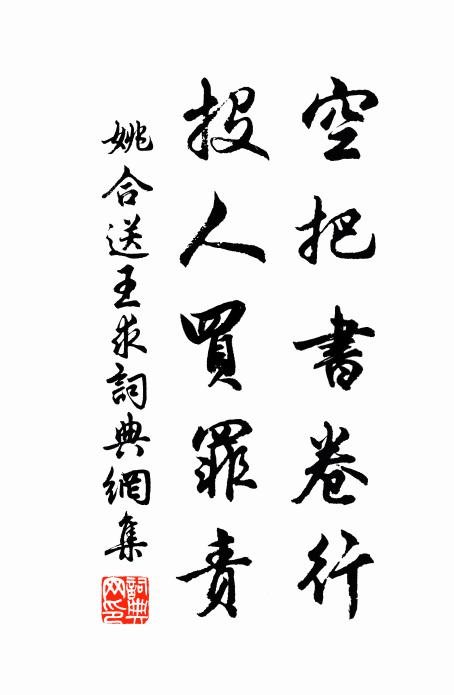 空把書卷行
投人買罪責
姚合送王求詞典網集
詞典網印